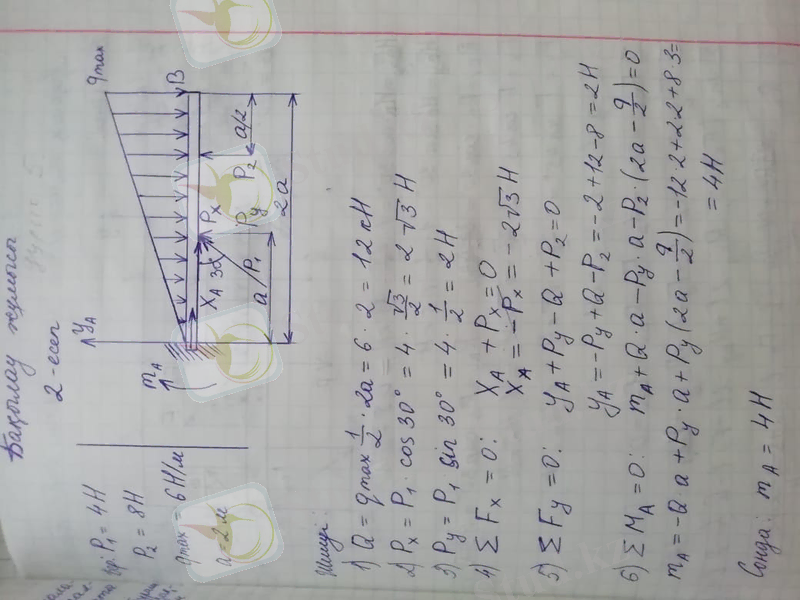 Бақылау жұмысы
2-есеп
Бер: P₁ = 4Н
P₂ = 8Н
qmax = 6 Н/м
a = 2м
mA
YA
XA
30°
Px
Py
P₁
P₂
qmax
B
a
a/2
2a
Шешуі:
1) Q = qmax · 1/2 · 2a = 6 · 2 = 12 кН
2) Px = P₁ · cos 30° = 4 · √3/2 = 2√3 Н
3) Py = P₁ sin 30° = 4 · 1/2 = 2Н
4) ∑Fx = 0: XA + Px = 0
XA = −Px = −2√3 Н
5) ∑Fy = 0: YA + Py − Q + P₂ = 0
YA = −Py + Q − P₂ = −2 + 12 − 8 = 2Н
6) ∑MA = 0: mA + Q · a − Py · a − P₂ · (2a − a/2) = 0
mA = −Q a + Py · a + Py (2a − a/2) = −12 · 2 + 2·2 + 8 · 3 =
= 4Н
Сонда: mA = 4Н